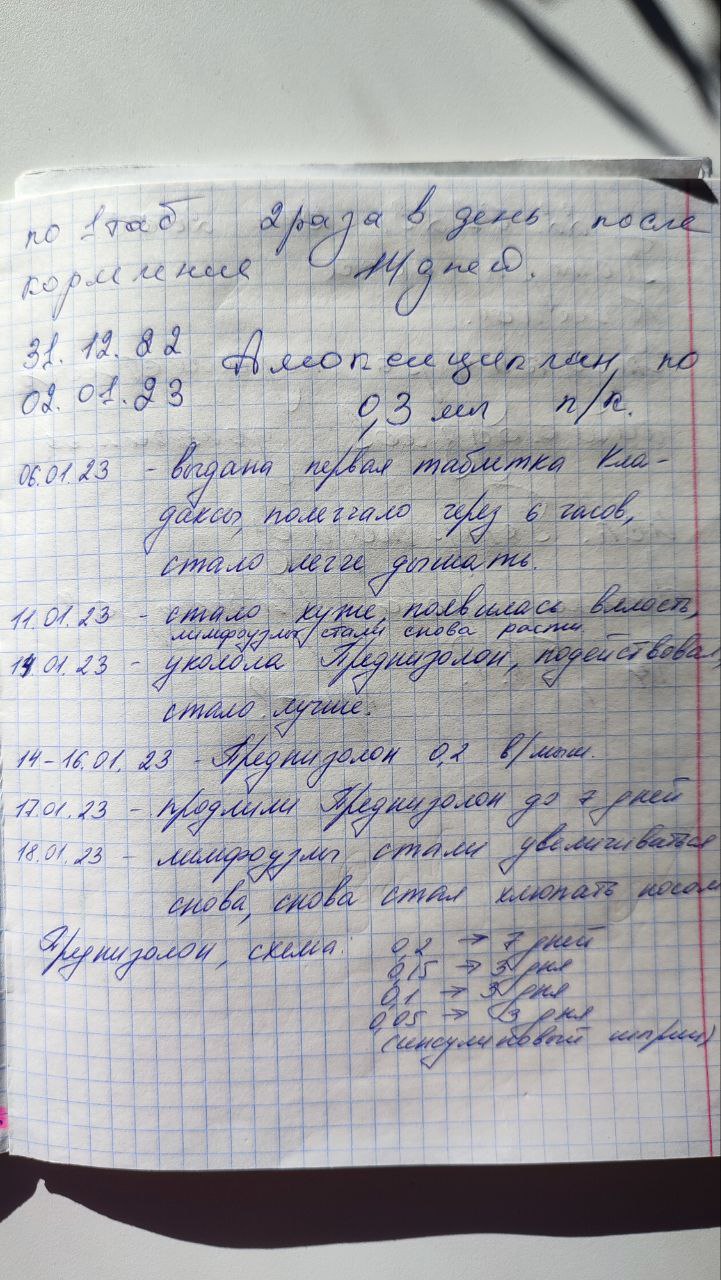 по 1 таб 2 раза в день после
кормления 14 дней.
31.12.22 Амоксициллин по
02.01.23 0,3 мл п/к.
06.01.23 - выдана первая таблетка Кла-
даксы, полегчало через 6 часов,
стало легче дышать.
11.01.23 - стало хуже, появилась вялость,
лимфоузлы стали снова расти
14.01.23 - уколола Преднизолон, подействовал,
стало лучше.
14-16.01.23 - Преднизолон 0,2 в/мыш.
17.01.23 - продлили Преднизолон до 7 дней
18.01.23 - лимфоузлы стали увеличиваться
снова, снова стал хлюпать носом
Преднизолон, схема: 0,2 → 7 дней
0,15 → 3 дня
0,1 → 3 дня
0,05 → 3 дня
(инсулиновый шприц)